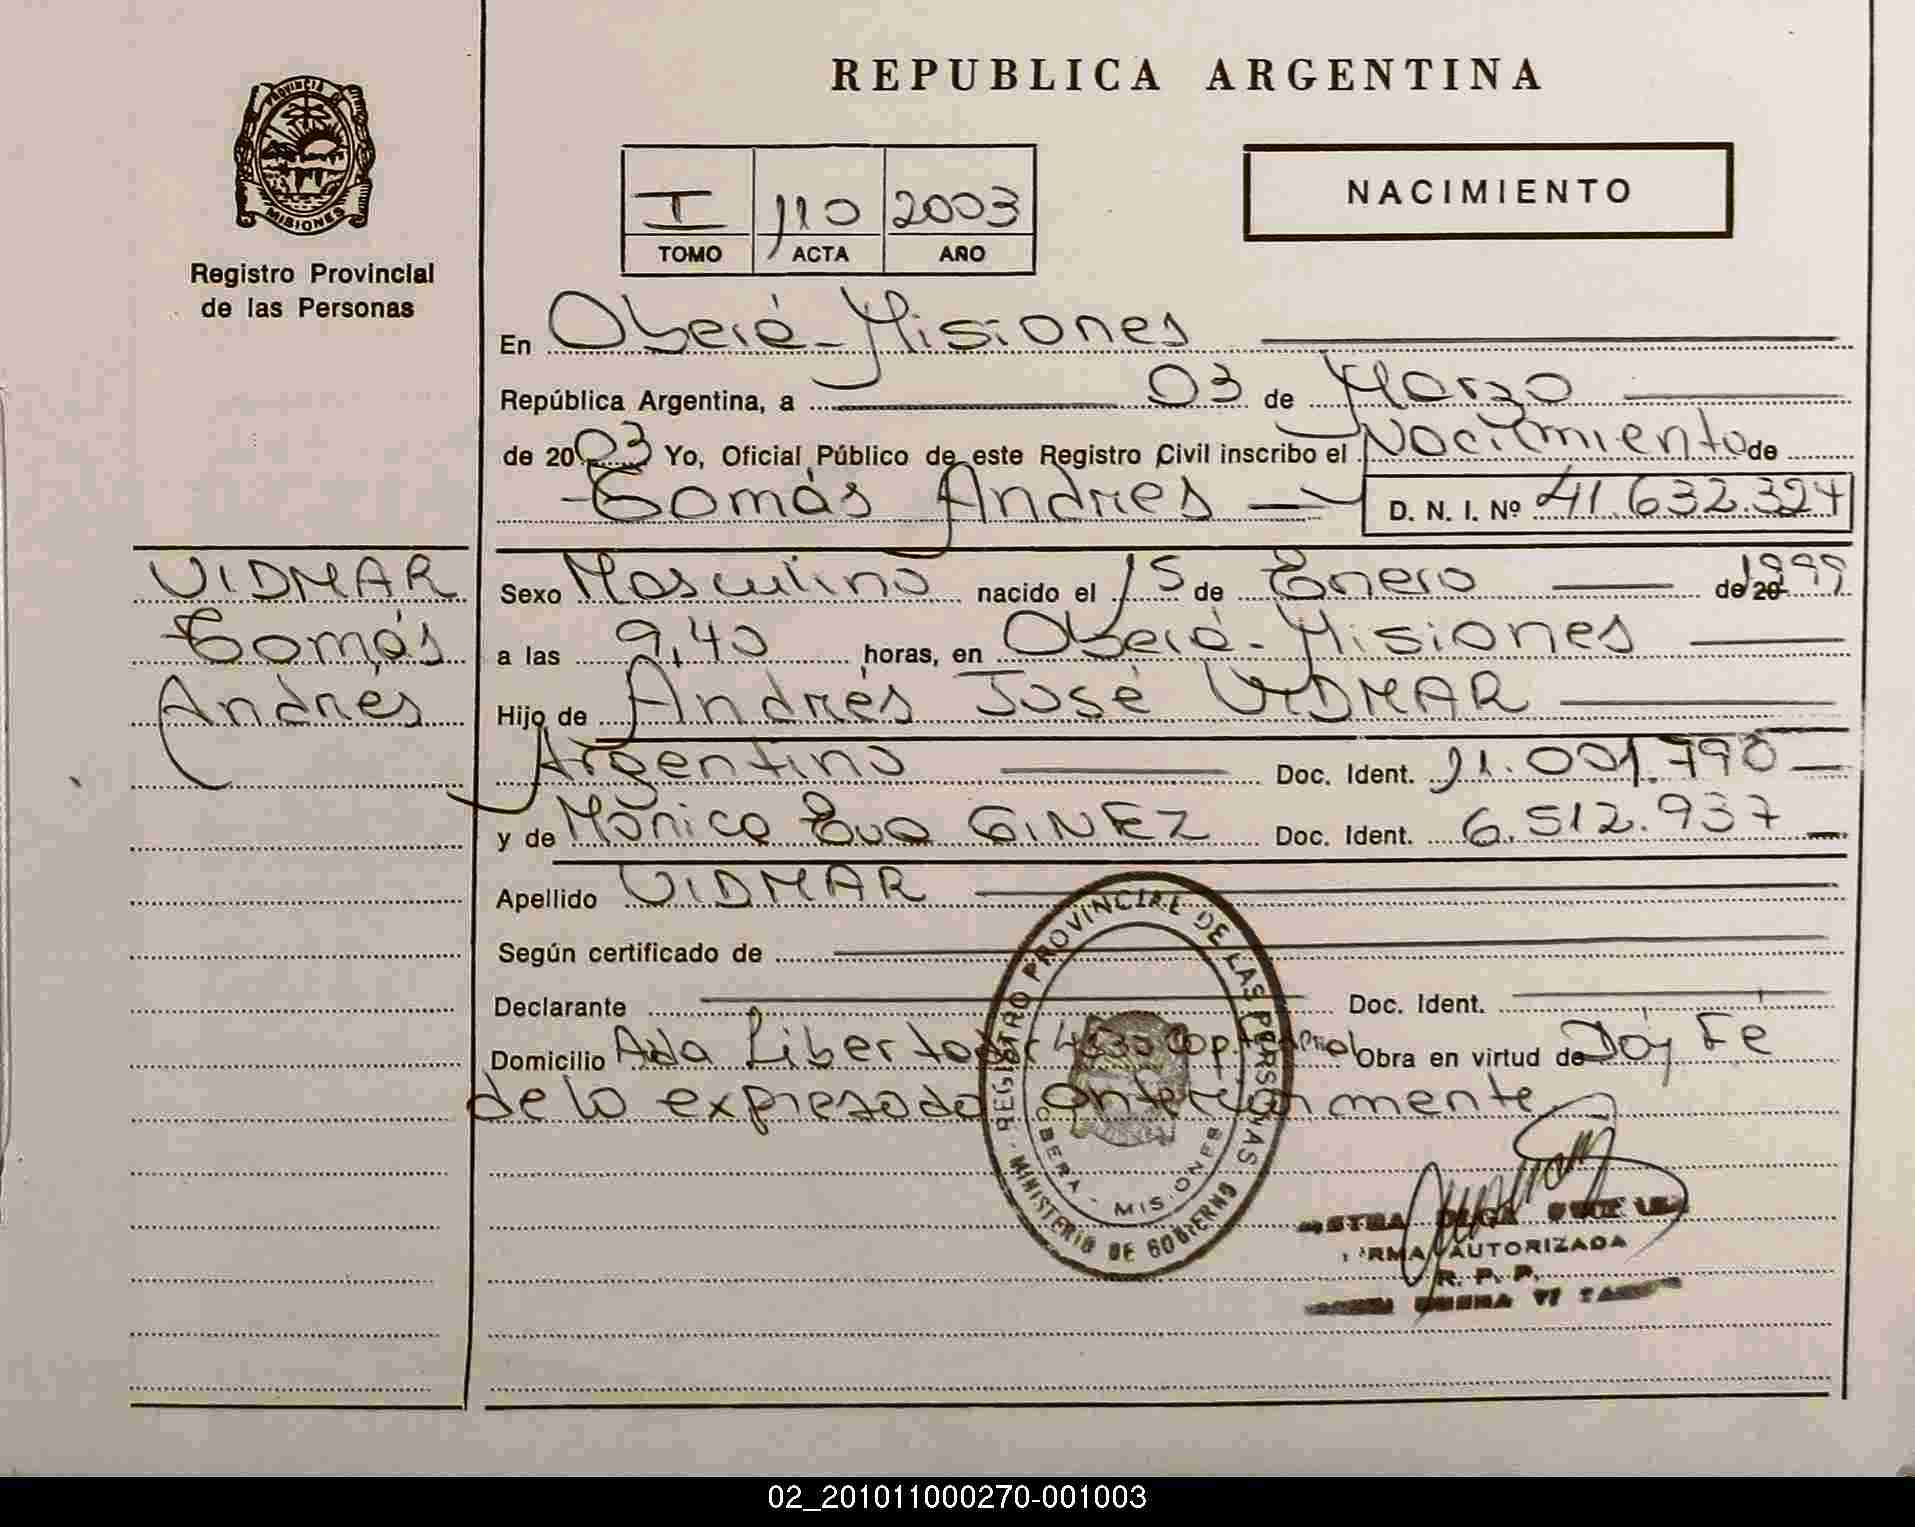 REPUBLICA ARGENTINA
PROVINCIA DE
MISIONES
Registro Provincial
de las Personas
I 110 2003
TOMO ACTA AÑO
NACIMIENTO
En Oberá - Misiones
República Argentina, a 03 de Marzo
de 2003 Yo, Oficial Público de este Registro Civil inscribo el Nacimiento de
Tomás Andrés D. N. I. Nº 41.632.324
VIDMAR
Tomás
Andrés
Sexo Masculino nacido el 15 de Enero de 20 1999
a las 9,40 horas, en Oberá - Misiones
Hijo de Andrés José VIDMAR
Argentino Doc. Ident. 11.001.790
y de Mónica Eva GINEZ Doc. Ident. 6.512.937
Apellido VIDMAR
Según certificado de
Declarante Doc. Ident.
Domicilio Avda Libertador Obra en virtud de Doy Fe
de lo expresado anteriormente
REGISTRO PROVINCIAL DE LAS PERSONAS
MINISTERIO DE GOBIERNO
OBERA - MISIONES
OLGA
FIRMA AUTORIZADA
R. P. P.
02_201011000270-001003